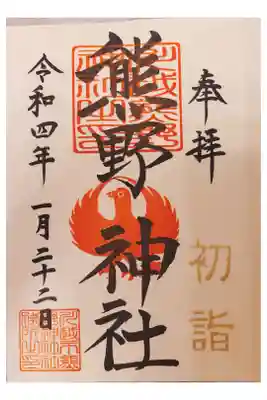 奉拝
初詣
熊野神社
令和四年一月二十二日